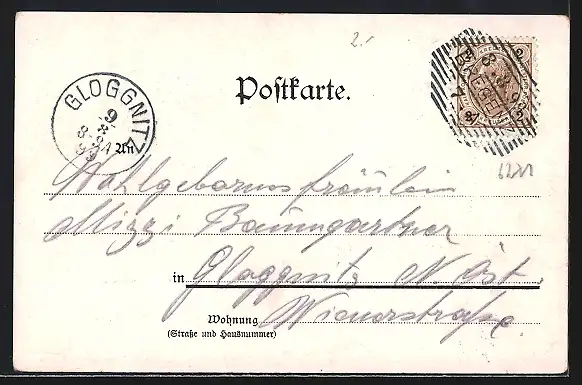 2.-
Postkarte.
GLOGGNITZ
9
8
8-9A
99
2 2
2 2
An
6221
Wohlgebornes Fräulein
Mizzi Baumgartner
in Gloggnitz N. Öst.
Wienerstraße
Wohnung
(Straße und Hausnummer)